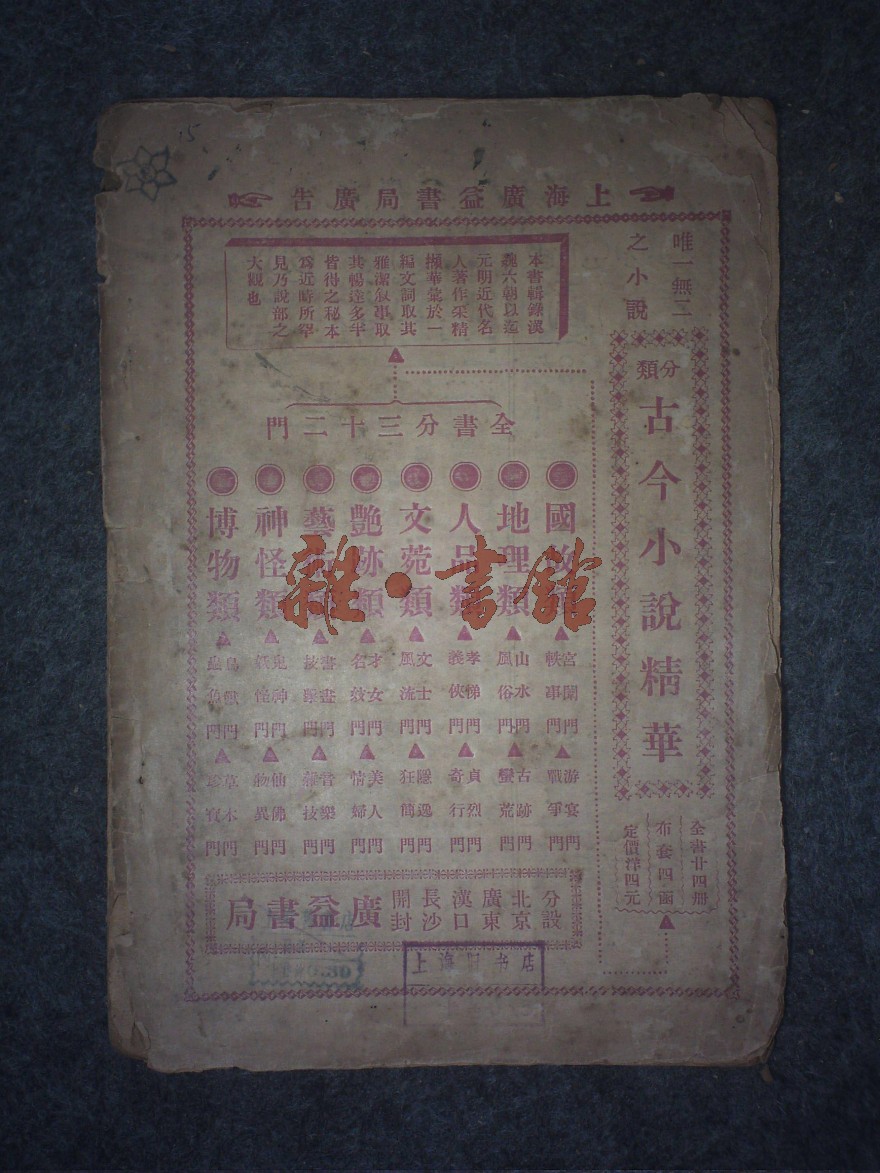 上海廣益書局廣告
唯一無二
之小說
分類
古今小說精華
全書廿四冊
布套四函
定價洋四元
本書輯錄漢
魏六朝以迄
元明近代名
人著作采精
擷華彙於一
編文詞取其
雅潔叙事取
其暢達多半
皆得之秘本
為近時所罕
見乃說部之
大觀也
全書分三十二門
國故類
宮闈門
軼事門
游宴門
戰爭門
地理類
山水門
風俗門
古跡門
蠻荒門
人品類
孝悌門
義俠門
貞烈門
奇行門
文苑類
文士門
風流門
隱逸門
狂簡門
艷跡類
才女門
名妓門
美人門
情婦門
藝術類
書畫門
技擊門
音樂門
雜技門
神怪類
鬼神門
妖怪門
仙佛門
物異門
博物類
鳥獸門
蟲魚門
草木門
珍寶門
分設
北京
廣東
漢口
長沙
開封
廣益書局
上海旧书店
雜·書館
15